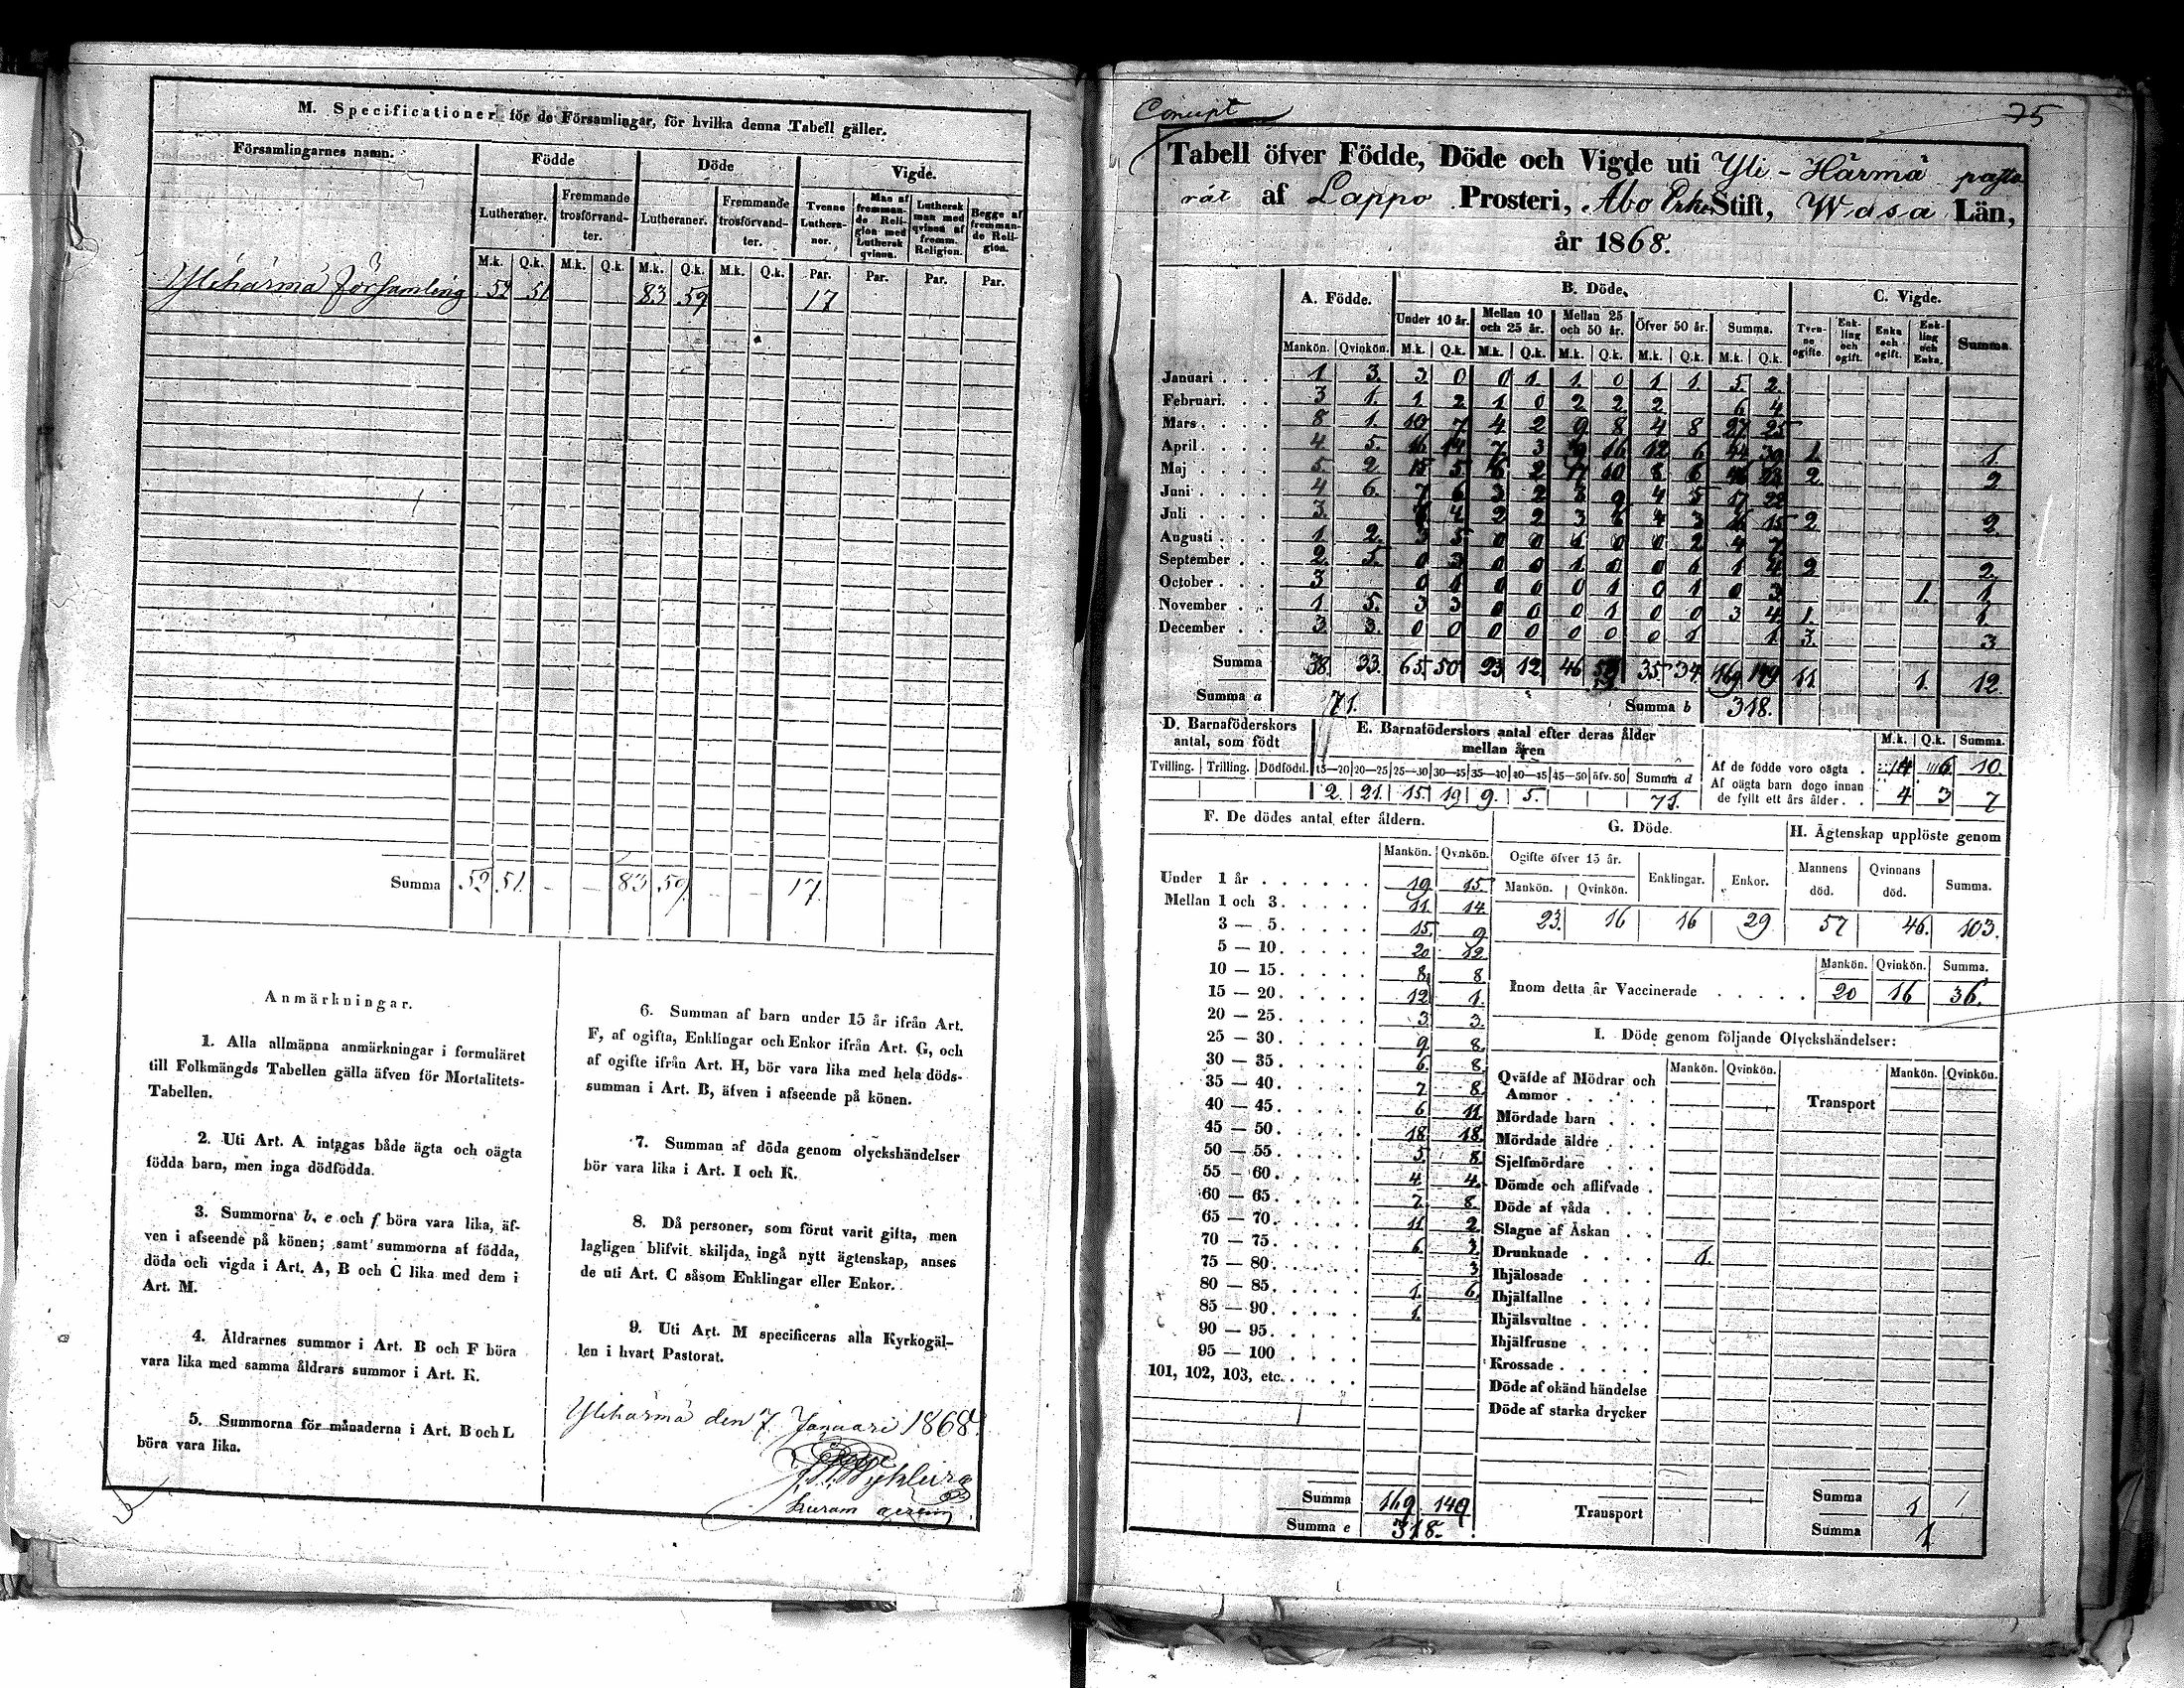 M. Specificationer för de Församlingar, för hvilka denna Tabell gäller.
Församlingarnes namn. Födde Döde Vigde.
Lutheraner. Fremmande trosförvandter. Lutheraner. Fremmande trosförvandter. Tvenne Lutheraner. Man af fremmande Religion med Luthersk qvinna. Luthersk man med qvinna af fremm. Religion. Begge af fremmande Religion.
M.k. Q.k. M.k. Q.k. M.k. Q.k. M.k. Q.k. Par. Par. Par. Par.
Ylihärmä Församling 52 51 83 59 17
Summa 52. 51. - - 83 59. - - 17.
Anmärkningar.
1. Alla allmänna anmärkningar i formuläret
till Folkmängds Tabellen gälla äfven för Mortalitets-
Tabellen.
2. Uti Art. A intagas både ägta och oägta
födda barn, men inga dödfödda.
3. Summorna b, e och f böra vara lika, äf-
ven i afseende på könen; samt summorna af födda,
döda och vigda i Art. A, B och C lika med dem i
Art. M.
4. Åldrarnes summor i Art. B och F böra
vara lika med samma åldrars summor i Art. K.
5. Summorna för månaderna i Art. B och L
böra vara lika.
6. Summan af barn under 15 år ifrån Art.
F, af ogifta, Enklingar och Enkor ifrån Art. G, och
af ogifte ifrån Art. H, bör vara lika med hela döds-
summan i Art. B, äfven i afseende på könen.
7. Summan af döda genom olyckshändelser
bör vara lika i Art. I och K.
8. Då personer, som förut varit gifta, men
lagligen blifvit skiljda, ingå nytt ägtenskap, anses
de uti Art. C såsom Enklingar eller Enkor.
9. Uti Art. M specificeras alla Kyrkogäl-
len i hvart Pastorat.
Ylihärmä den 7 Januari 1868.
Concept 75
Tabell öfver Födde, Döde och Vigde uti Yli-Härmä pasto
rat af Lappo Prosteri, Åbo Erke Stift, Wasa Län,
år 1868.
A. Födde. B. Döde. C. Vigde.
Under 10 år. Mellan 10 och 25 år. Mellan 25 och 50 år. Öfver 50 år. Summa. Tvenne ogifte. Enkling och ogift. Enka och ogift. Enkling och Enka. Summa.
Mankön. Qvinkön. M.k. Q.k. M.k. Q.k. M.k. Q.k. M.k. Q.k. M.k. Q.k.
Januari 1 3. 3 0 0 1 1 0 1 1 5 2
Februari. 3 1. 1 2 1 0 2 2 2 6 4
Mars 8 1. 10 7 4 2 9 8 4 8 27 25
April 4 5. 16 14 7 3 16 12 6 44 39 1. 1
Maj 5 2 15 5 2 10 8 6 23 2 2
Juni 4 6. 7 6 3 2 3 9 4 5 17 22
Juli 3. 4 2 2 3 6 4 3 16 15 2 2.
Augusti 1 2. 3 5 0 0 1 0 0 2 4 7
September 2. 5. 0 3 0 0 1 0 0 1 1 4 2 2.
October 3 0 1 0 0 0 1 0 1 0 3 1. 1
November 1 5. 3 3 0 0 0 1 0 0 3 4 1. 1.
December 3 3. 0 0 0 0 0 0 0 1 1 3. 3
Summa 38. 33. 65 50 23 12 46 35 34 169 149 11. 1. 12.
Summa a 71. Summa b 318.
D. Barnaföderskors antal, som födt E. Barnaföderskors antal efter deras ålder mellan åren M.k. Q.k. Summa.
Tvilling. Trilling. Dödfödd. 15—20 20—25 25—30 30—35 35—40 40—45 45—50 öfv. 50 Summa d
2. 21. 15. 19 9. 5. 71.
Af de födde voro oägta 4 6. 10.
Af oägta barn dogo innan
de fyllt ett års ålder 4 3 7
F. De dödes antal efter åldern. G. Döde. H. Ägtenskap upplöste genom
Mankön. Qvinkön. Ogifte öfver 15 år. Mankön. Qvinkön. Enklingar. Enkor. Mannens död. Qvinnans död. Summa.
23. 16 16 29 57 46. 103.
Under 1 år 19 15
Mellan 1 och 3 11 14
3 — 5 15 9
5 — 10 20 12
10 — 15 8 8
15 — 20 12 1.
20 — 25 3 3.
25 — 30 9 8
30 — 35 6. 8
35 — 40 7 8
40 — 45 6 11
45 — 50 18 18.
50 — 55 5 8
55 — 60 4 4.
60 — 65 7 8
65 — 70 11 2
70 — 75 6. 3
75 — 80 3
80 — 85 1. 6.
85 — 90 1.
90 — 95
95 — 100
101, 102, 103, etc.
Summa 169 149
Summa e 318.
Mankön. Qvinkön. Summa.
Inom detta år Vaccinerade 20 16 36.
I. Döde genom följande Olyckshändelser:
Mankön. Qvinkön. Mankön. Qvinkön.
Qväfde af Mödrar och
Ammor Transport
Mördade barn
Mördade äldre
Sjelfmördare
Dömde och aflifvade
Döde af våda
Slagne af Åskan
Drunknade 1.
Ihjälosade
Ihjälfallne
Ihjälsvultne
Ihjälfrusne
Krossade
Döde af okänd händelse
Döde af starka drycker
Summa 1
Transport Summa 1